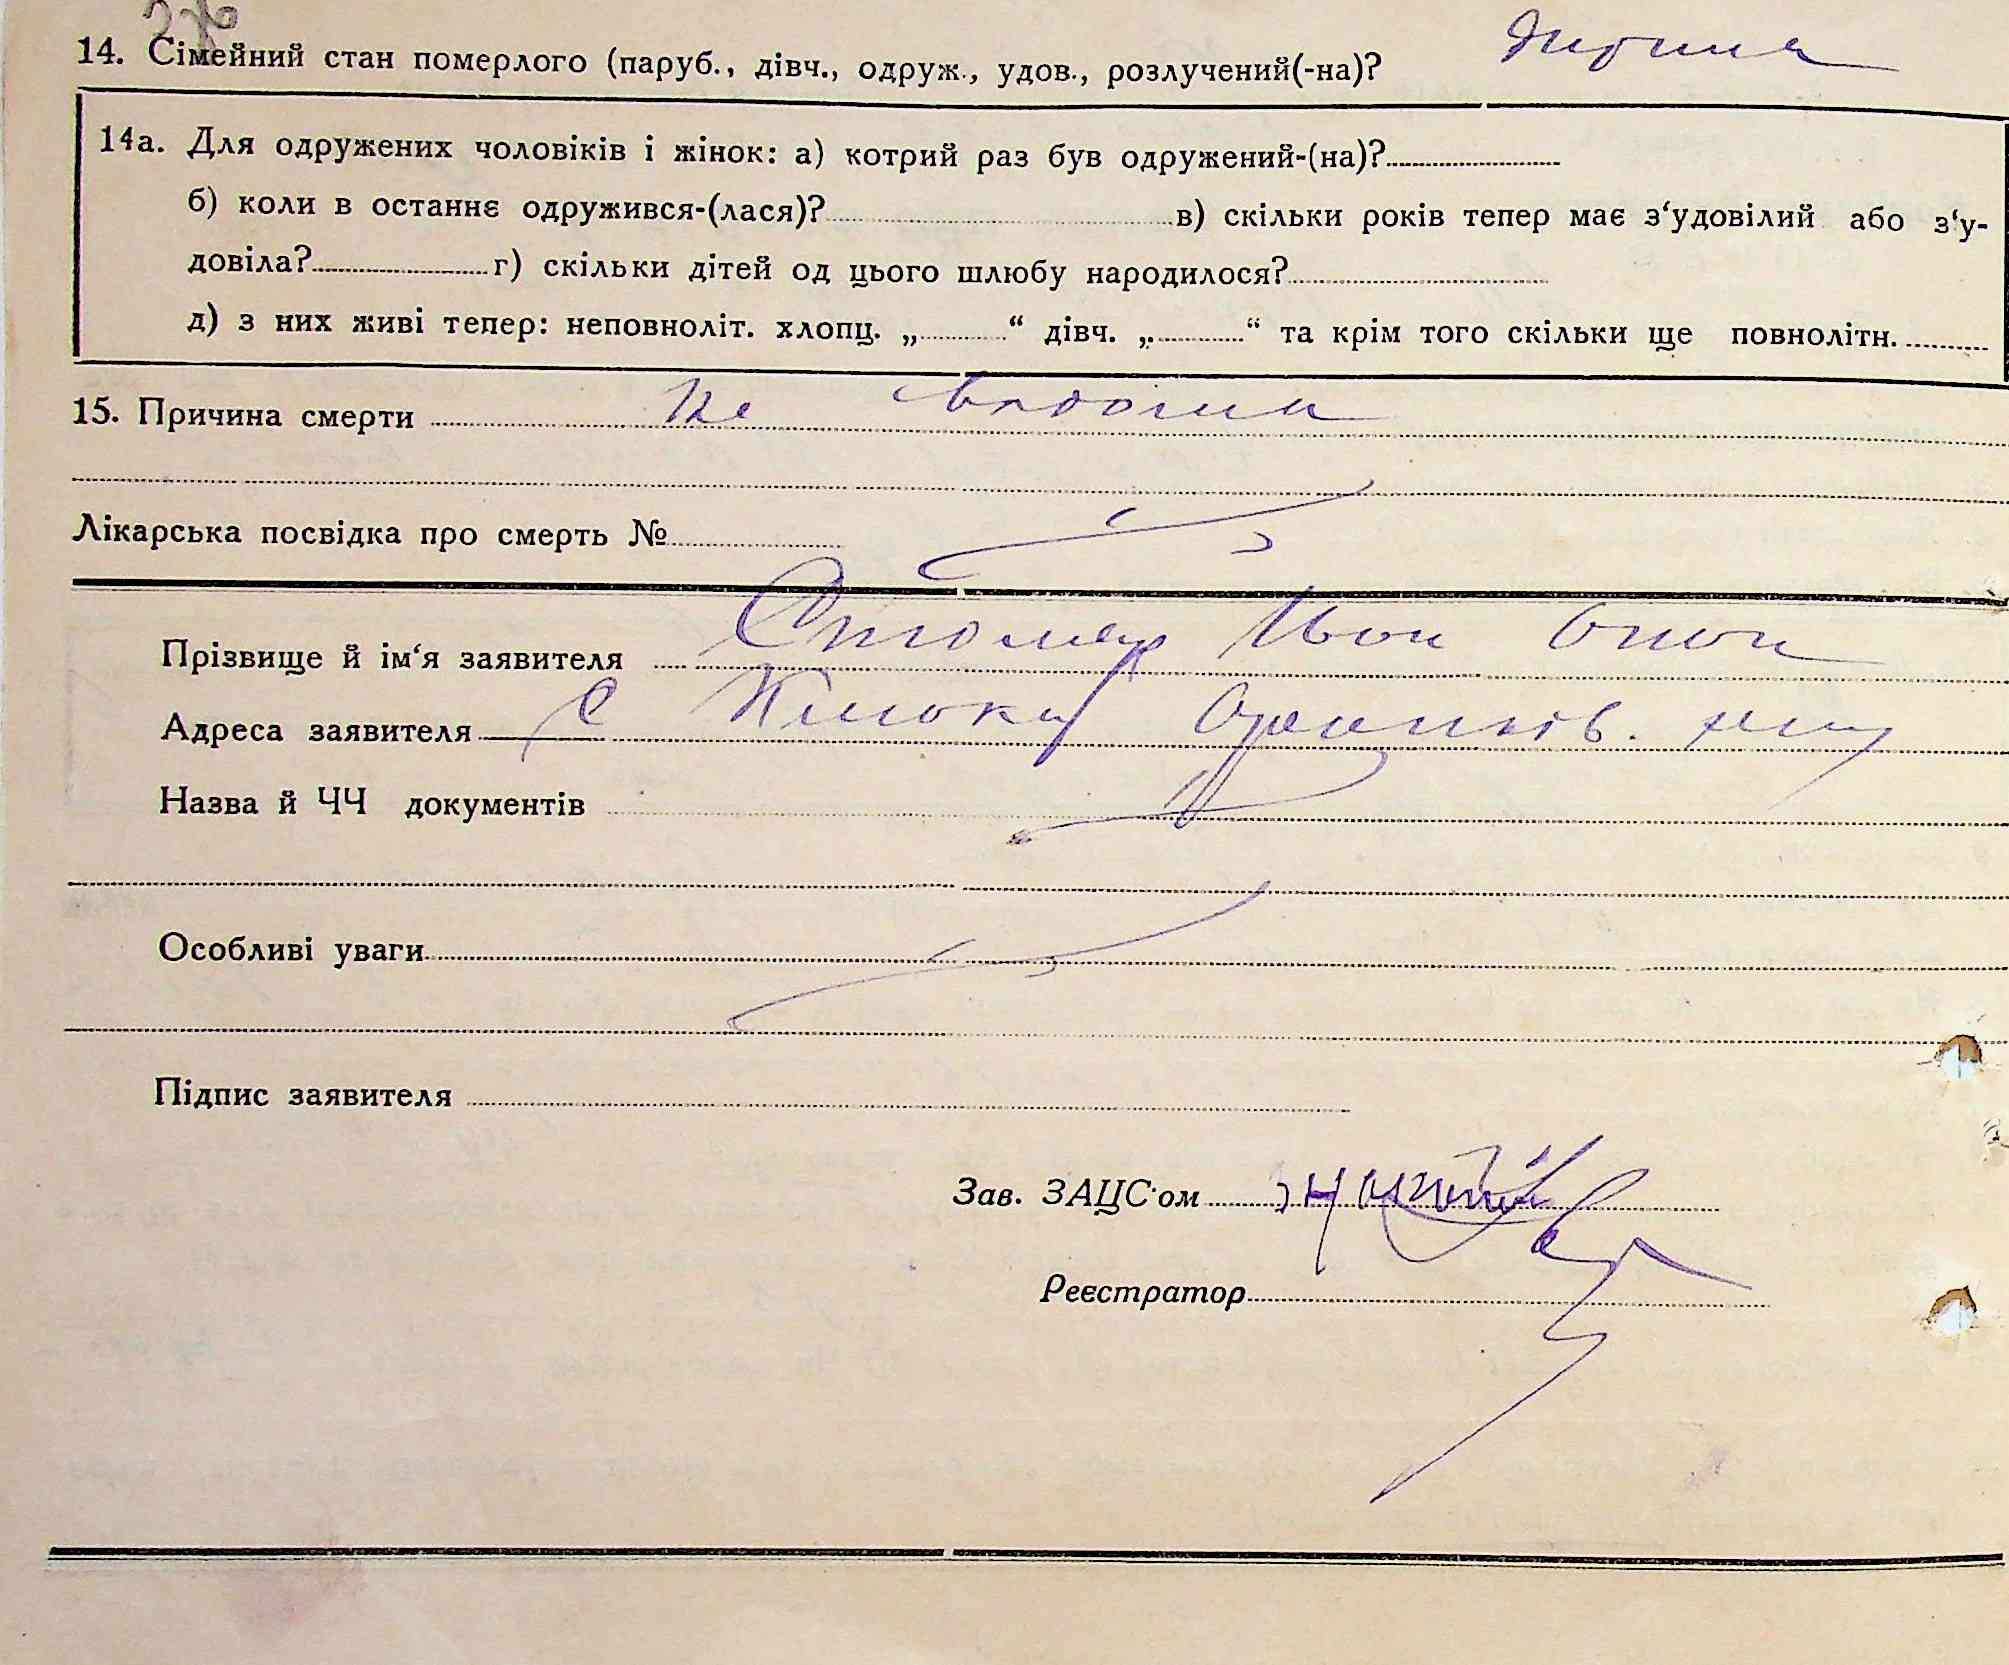 14. Сімейний стан померлого (паруб., дівч., одруж., удов., розлучений(-на)? дитина
14а. Для одружених чоловіків і жінок: а) котрий раз був одружений-(на)?
б) коли в останнє одружився-(лася)? в) скільки років тепер має з‘удовілий або з‘у-
довіла? г) скільки дітей од цього шлюбу народилося?
д) з них живі тепер: неповноліт. хлопц. „ “ дівч. „ “ та крім того скільки ще повнолітн.
15. Причина смерти не відома
Лікарська посвідка про смерть №
Прізвище й ім‘я заявителя Столяр Іван
Адреса заявителя с
Назва й ЧЧ документів
Особливі уваги
Підпис заявителя
Зав. ЗАЦС‘ом
Реєстратор